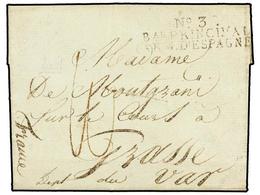 No. 3
BAU PRINCIPAL
ARM. D'ESPAGNE
A Madame
De Montgrand
Sur le Cours à
Grasse
Dept. du Var
France